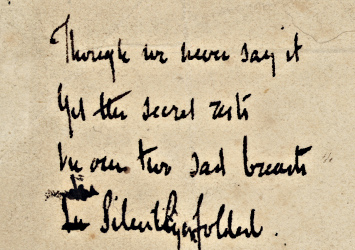 Though we never say it
Yet the secret rests
In our two sad breasts
In Silently folded.